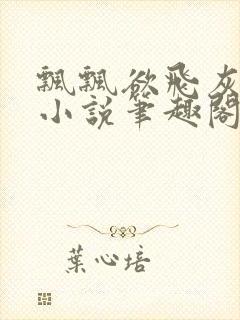 飄飄欲飛灰
小說筆趣閣
葉心培